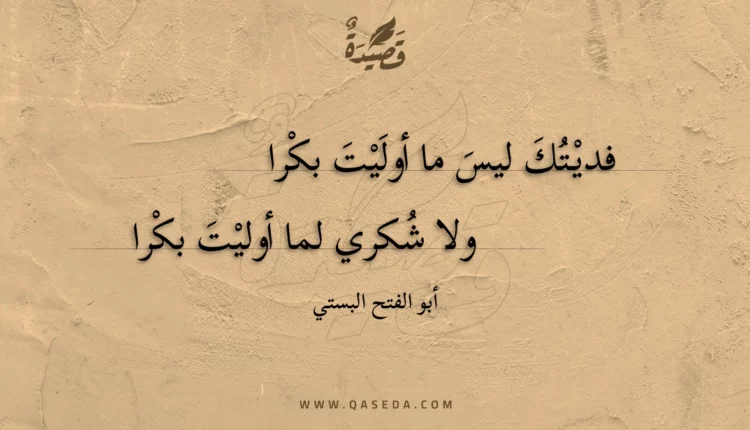 قَصِيْدَةٌ
فديْتُكَ ليسَ ما أولَيْتَ بكْرا
ولا شُكري لما أوليْتَ بكْرا
أبو الفتح البستي
WWW.QASEDA.COM